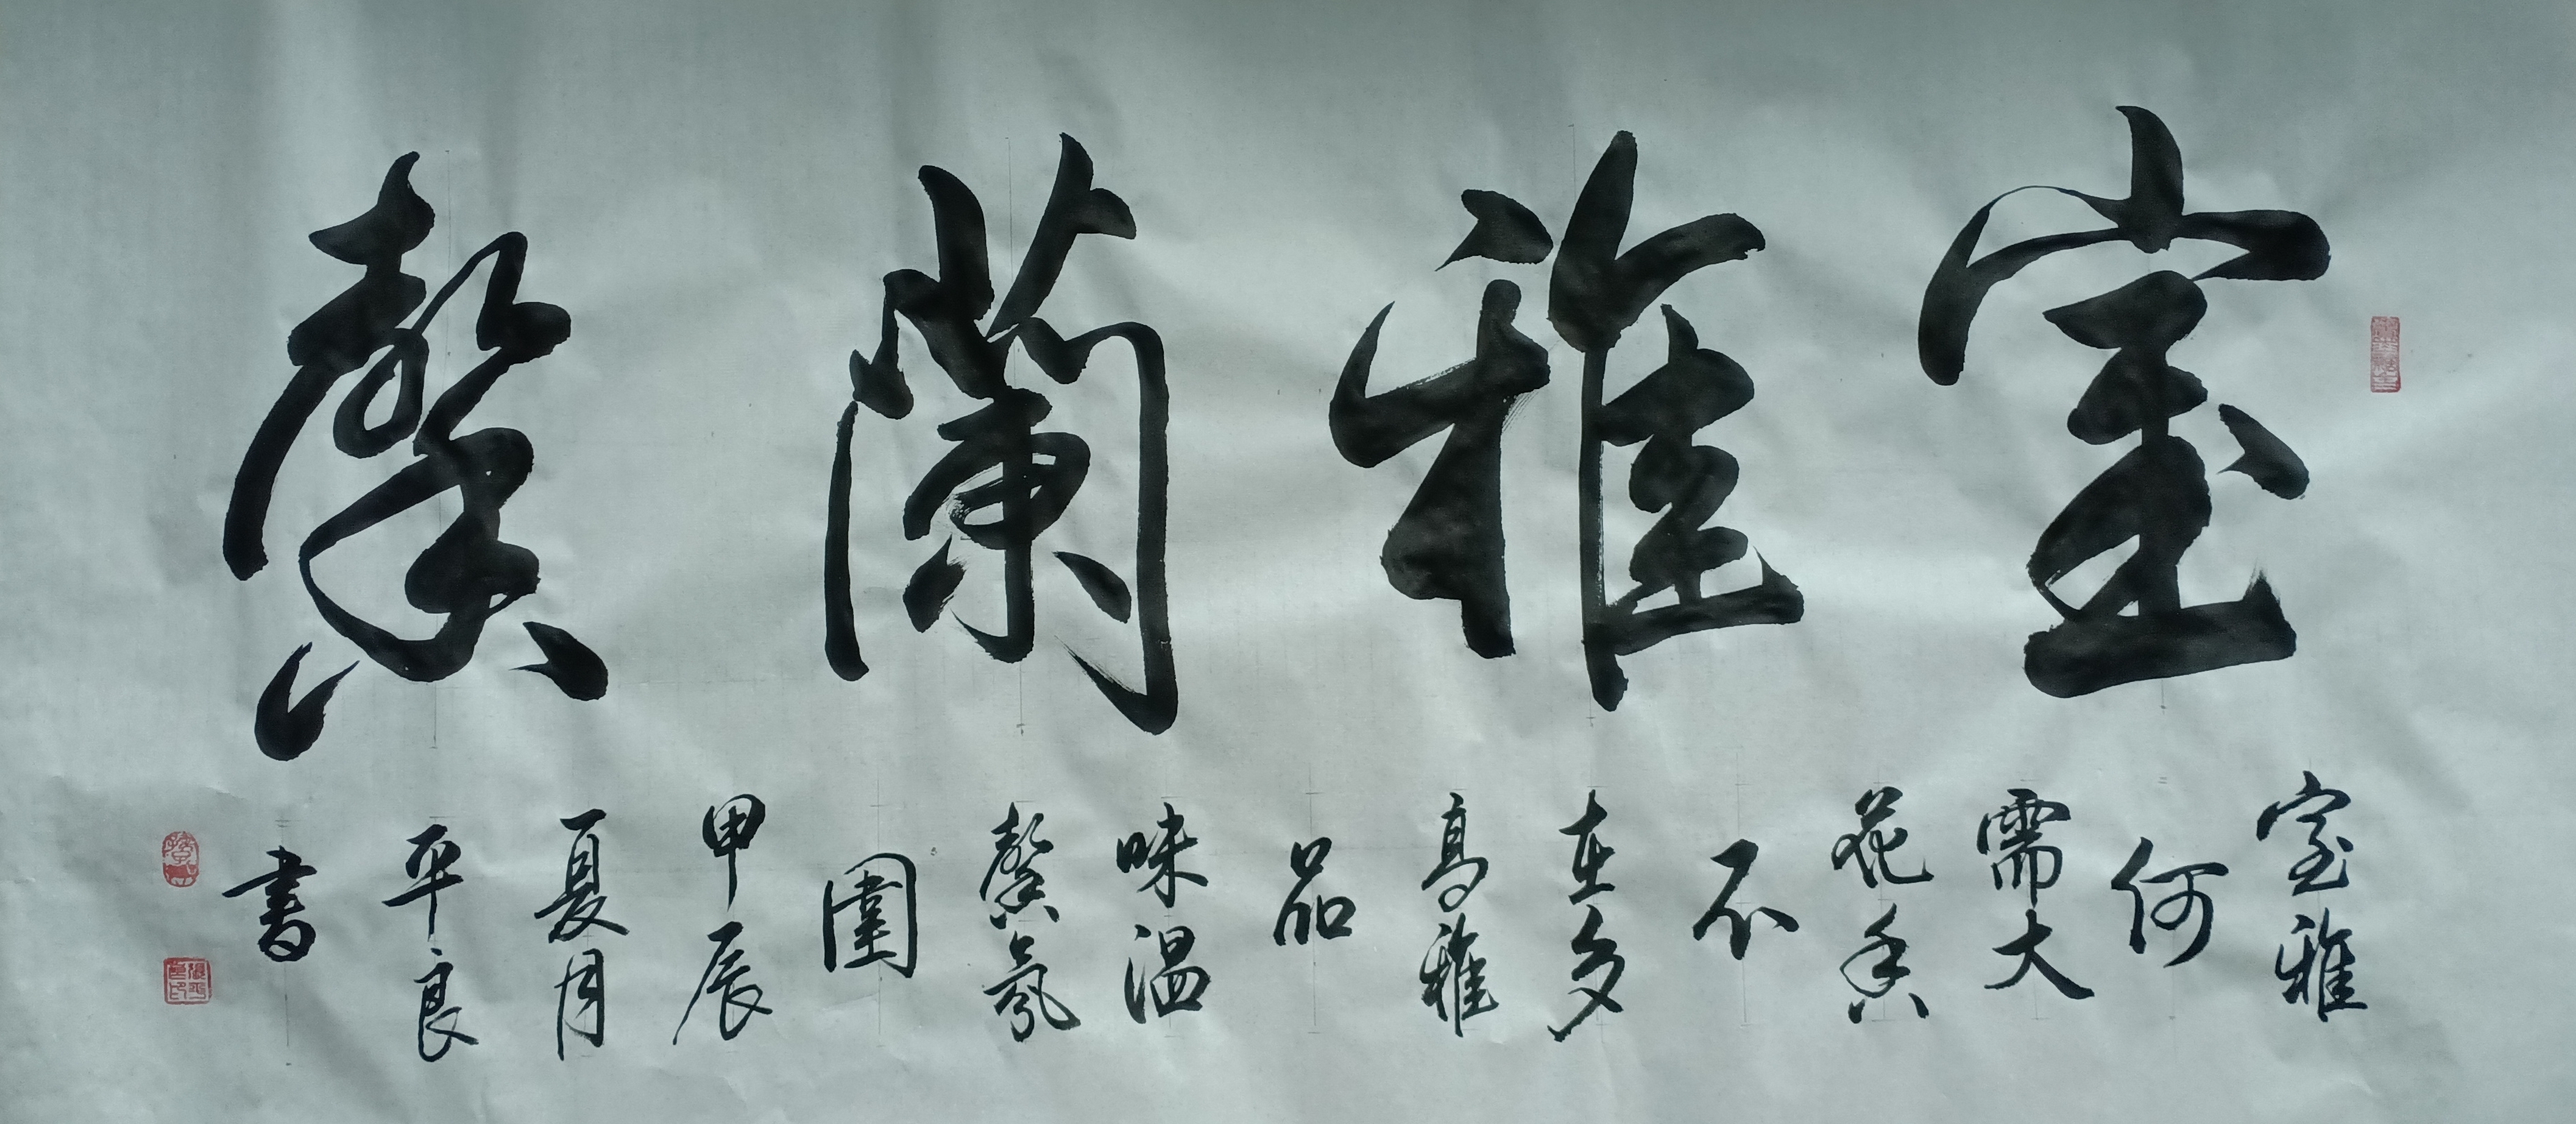 室雅蘭馨
室雅
何
需大
花香
不
在多
高雅
品
味温
馨氛
圍
甲辰
夏月
平良
書